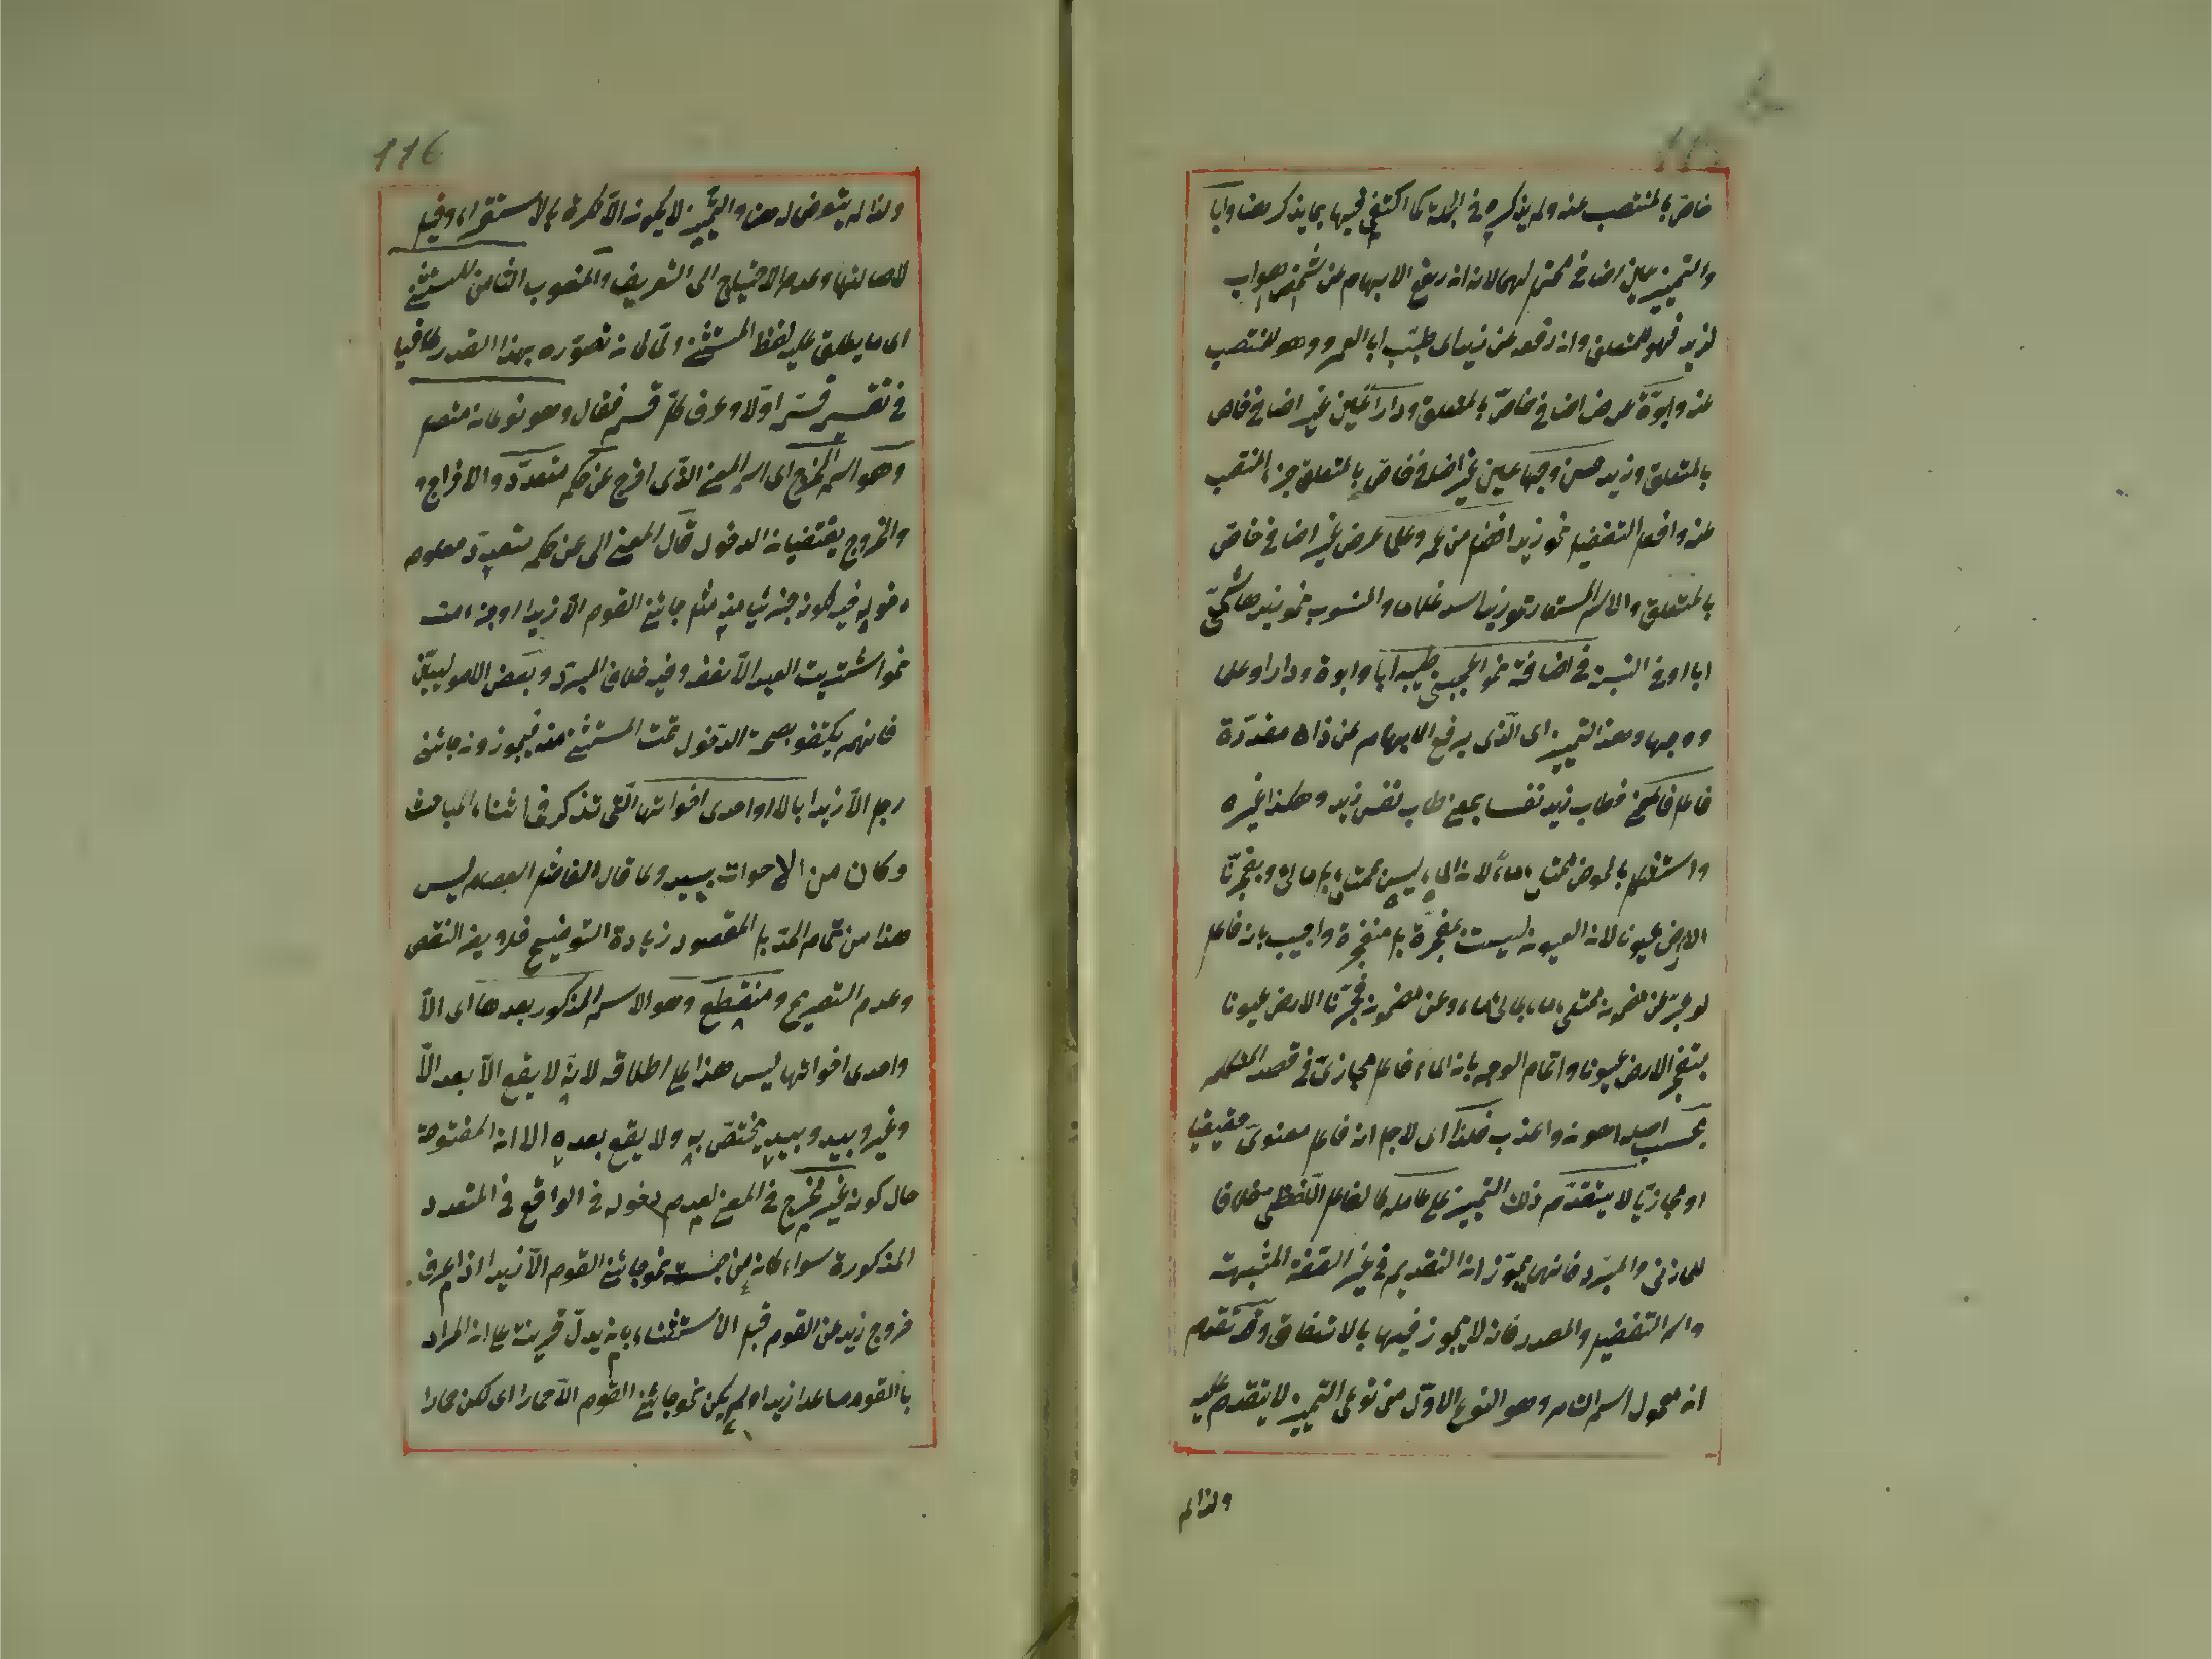 خاص بالمنتصب عنه ولم يذكره في الجملة كما اكتفى فيها بما يذكر هنا وابا
والتمييز عين اضافي محتمل لهما لانه ان رفع الابهام عن شخص هو اب
لزيد فهو للمتعلق وان رفعه عن زيد اى طيّب ابا لعمرو وهو للمنتصب
عنه وابوّة عرض اضافي خاصّ بالمتعلق ودارا عين غير اضافي خاص
بالمتعلق وزيد حسن وجها عين غير اضافي خاص بالمتعلق جزء المنتصب
عنه وافعل التفضيل نحو زيد افضل من عمرو علما عرض غير اضافي خاصّ
بالمتعلق والاسم المستعار نحو زيد اسد غلاما والمنسوب نحو زيد هاشميّ
ابا او في النسبة في اضافة نحو اعجبني طيبه ابا وابوة ودارا وعلما
ووجها وهذا التمييز اى الّذى يرفع الابهام عن ذات مقدّرة
فاعل في المعنى فطاب زيد نفسا بمعنى طاب نفس زيد وهكذا غيره
واستشكل بالحوض ممتلئ ماء لان الماء ليس بممتلئ بل مالئ وبفجّرنا
الارض عيونا لان العيون ليست بمفجّرة بل منفجرة واجيب بانه فاعل
لو عبّر عن مضمون ممتلئ ماء بمالئ ماء وعن مضمون فجّرنا الارض عيونا
بتفجر الارض عيونا واتمام الوجه بان الماء فاعل مجازىّ في قصد المتكلم
بحسب اصله فلذا اى لاجل انه فاعل معنوىّ حقيقيا
او مجازيّا لا يتقدّم ذلك التمييز على عامله كالفاعل اللّفظى خلافا
للمازنى والمبرّد فانهما يجوّزان التقديم في غير الصّفة المشبهة
واسم التفضيل والمصدر فانه لا يجوز فيها بالاتفاق وقد تقدم
ان معمول اسم التام وهو النوع الاوّل من نوعى التمييز لا يتقدم عليه
ولذا لم
116
ولذا لم يتعرض له هنا والتمييز لا يكون الّا نكرة بالاستقراء وقيل
لاصالتها وعدم الاحتياج الى التعريف والمنصوب الثامن المستثنى
اى ما يطلق عليه لفظ المستثنى ولمّا كان تصوّره بهذا القدر كافيا
في تقسيمه قسّم اولا وعرف كلّ قسم فقال وهو نوعان متصل
وهو اسم المخرج اى اسم المعنى الذّى اخرج عن حكم متعدّد والاخراج
والخروج يقتضيان الدخول قال المعنى الى عن حكم متعدّد معلوم
دخوله فيه لكونه جزئيا منه مثل جاءنى القوم الّا زيدا او جزء منه
نحو اشتريت العبد الّا نصفه وفيه خلاف المبرّد وبعض الاصوليين
فانهم يكتفو بصحة الدّخول تحت المستثنى منه فيجوزون جاءنى
رجل الّا زيدا بالّا او احدى اخواتها الّتى تذكر فى اثناء المباحث
وكان من الاخوات بيد ولما قال الفاضل العصام ليس
هذا من تمام الحدّ بل المقصود زيادة التوضيح فلا يضر النقص
وعدم التصريح ومنقطع وهو الاسم المذكور بعدها اى الّا
واحدى اخواتها ليس هذا على اطلاقه لانّه لا يقع الّا بعد الّا
وغير وبيد وبيد يختصّ به ولا يقع بعده الا ان المفتوحة
حال كونه غير مخرج في المعنى لعدم دخوله في الواقع في المتعدد
المذكورة سواء كان من جنسه نحو جاءنى القوم الّا زيدا اذا عرف
خروج زيد عن القوم قبل الاستثناء بان يدلّ قرينة على ان المراد
بالقوم ما عدا زيدا او لم يكن نحو جاءنى القوم الّا حمارا اى لكن حمارا